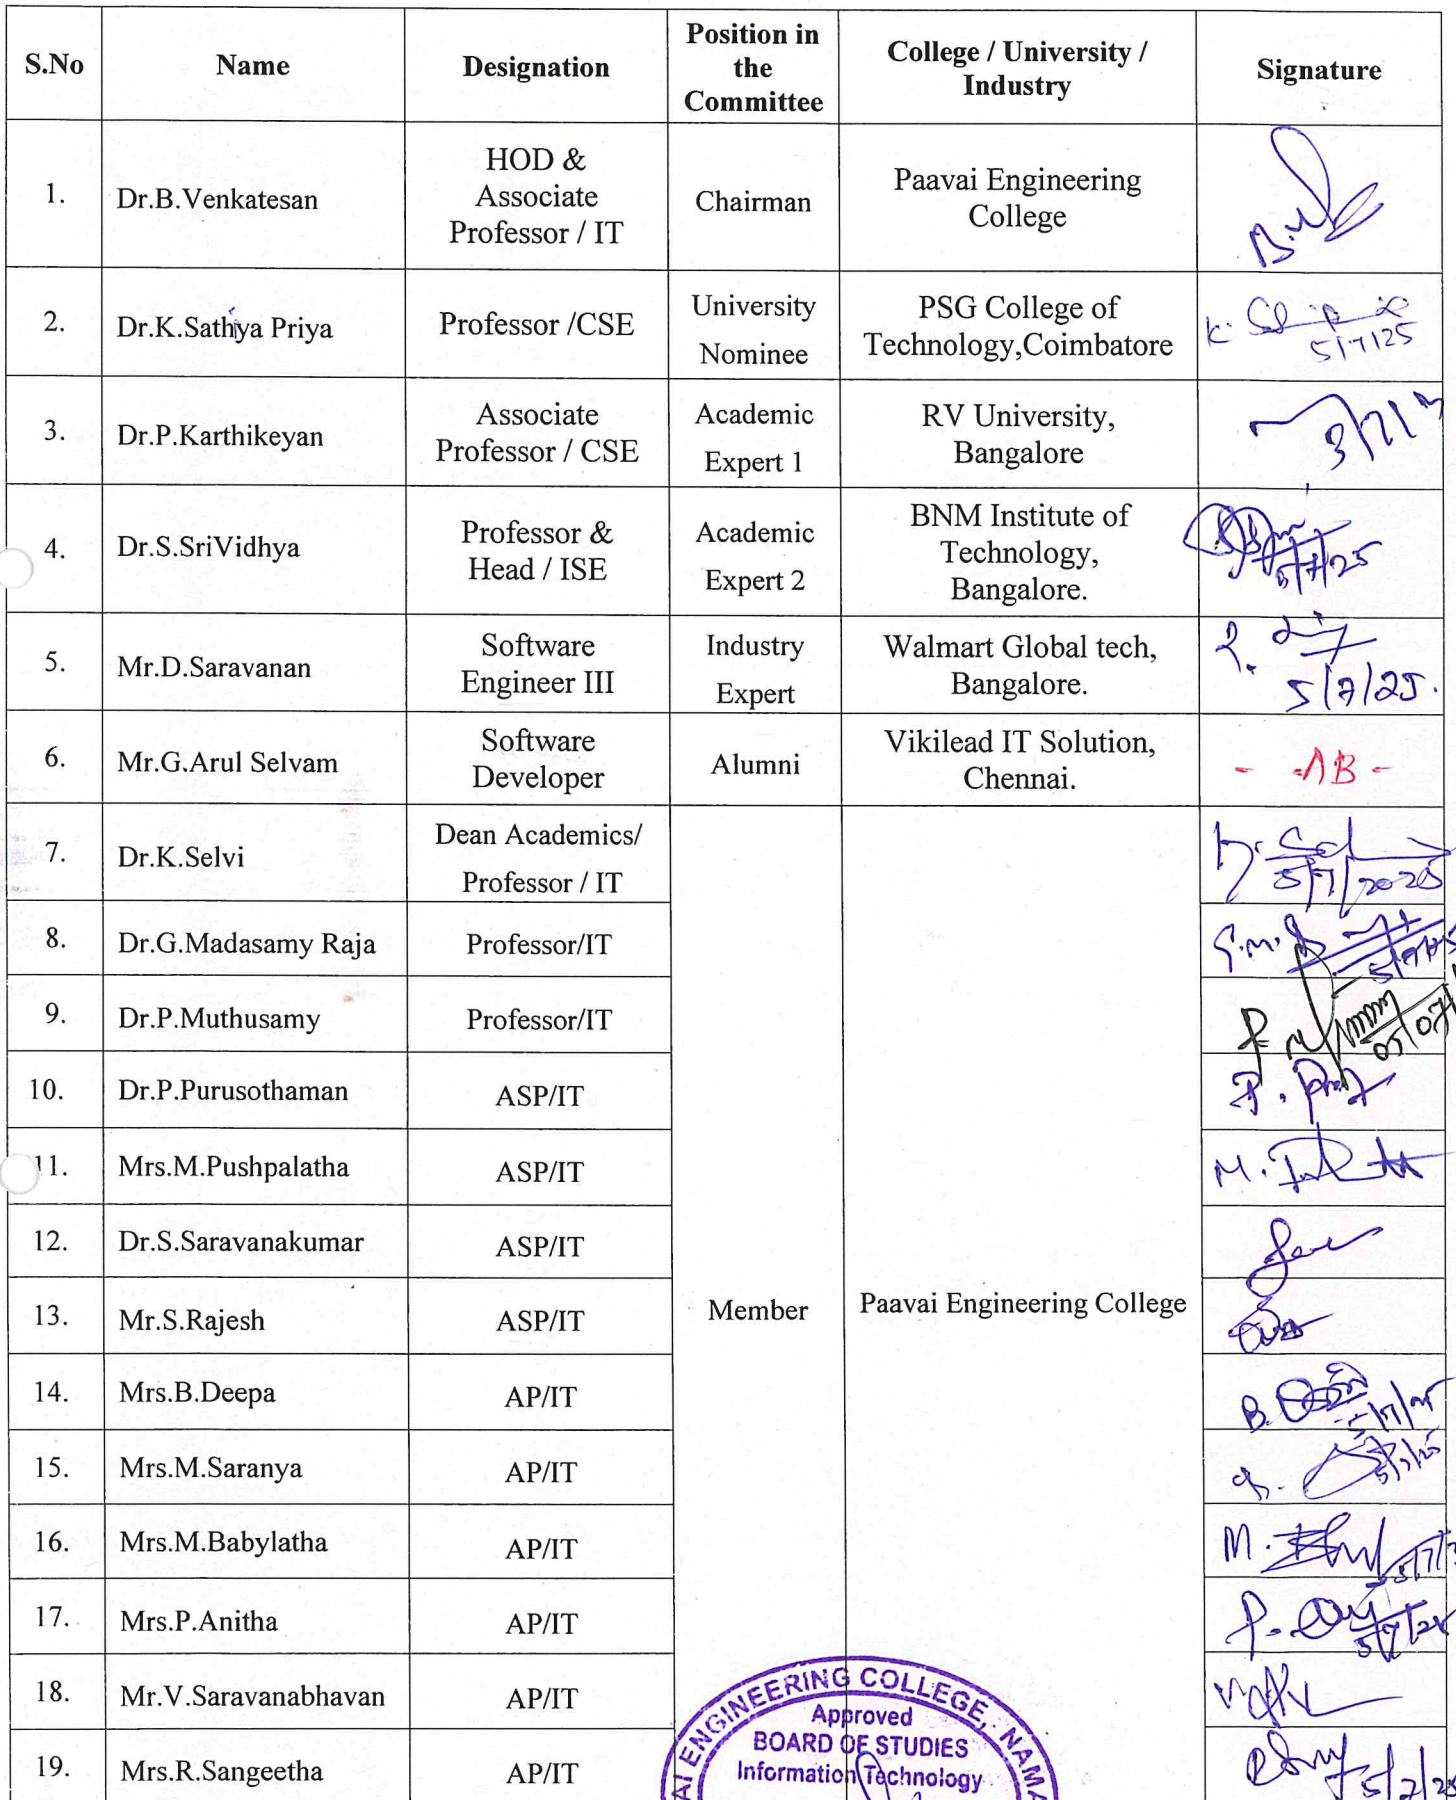 S.No Name Designation Position in the Committee College / University / Industry Signature
1. Dr.B.Venkatesan HOD & Associate Professor / IT Chairman Paavai Engineering College
2. Dr.K.Sathya Priya Professor /CSE University Nominee PSG College of Technology,Coimbatore 5/7/25
3. Dr.P.Karthikeyan Associate Professor / CSE Academic Expert 1 RV University, Bangalore
4. Dr.S.SriVidhya Professor & Head / ISE Academic Expert 2 BNM Institute of Technology, Bangalore. 5/7/25
5. Mr.D.Saravanan Software Engineer III Industry Expert Walmart Global tech, Bangalore. 5/7/25.
6. Mr.G.Arul Selvam Software Developer Alumni Vikilead IT Solution, Chennai. - AB -
7. Dr.K.Selvi Dean Academics/ Professor / IT 5/7/2025
8. Dr.G.Madasamy Raja Professor/IT
9. Dr.P.Muthusamy Professor/IT
10. Dr.P.Purusothaman ASP/IT
11. Mrs.M.Pushpalatha ASP/IT
12. Dr.S.Saravanakumar ASP/IT
13. Mr.S.Rajesh ASP/IT Member Paavai Engineering College
14. Mrs.B.Deepa AP/IT
15. Mrs.M.Saranya AP/IT 5/7/25
16. Mrs.M.Babylatha AP/IT
17. Mrs.P.Anitha AP/IT
18. Mr.V.Saravanabhavan AP/IT
19. Mrs.R.Sangeetha AP/IT
AI ENGINEERING COLLEGE, NAMA
Approved
BOARD OF STUDIES
Information Technology